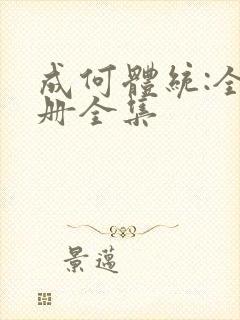 成何體統:全
册全集
景邁